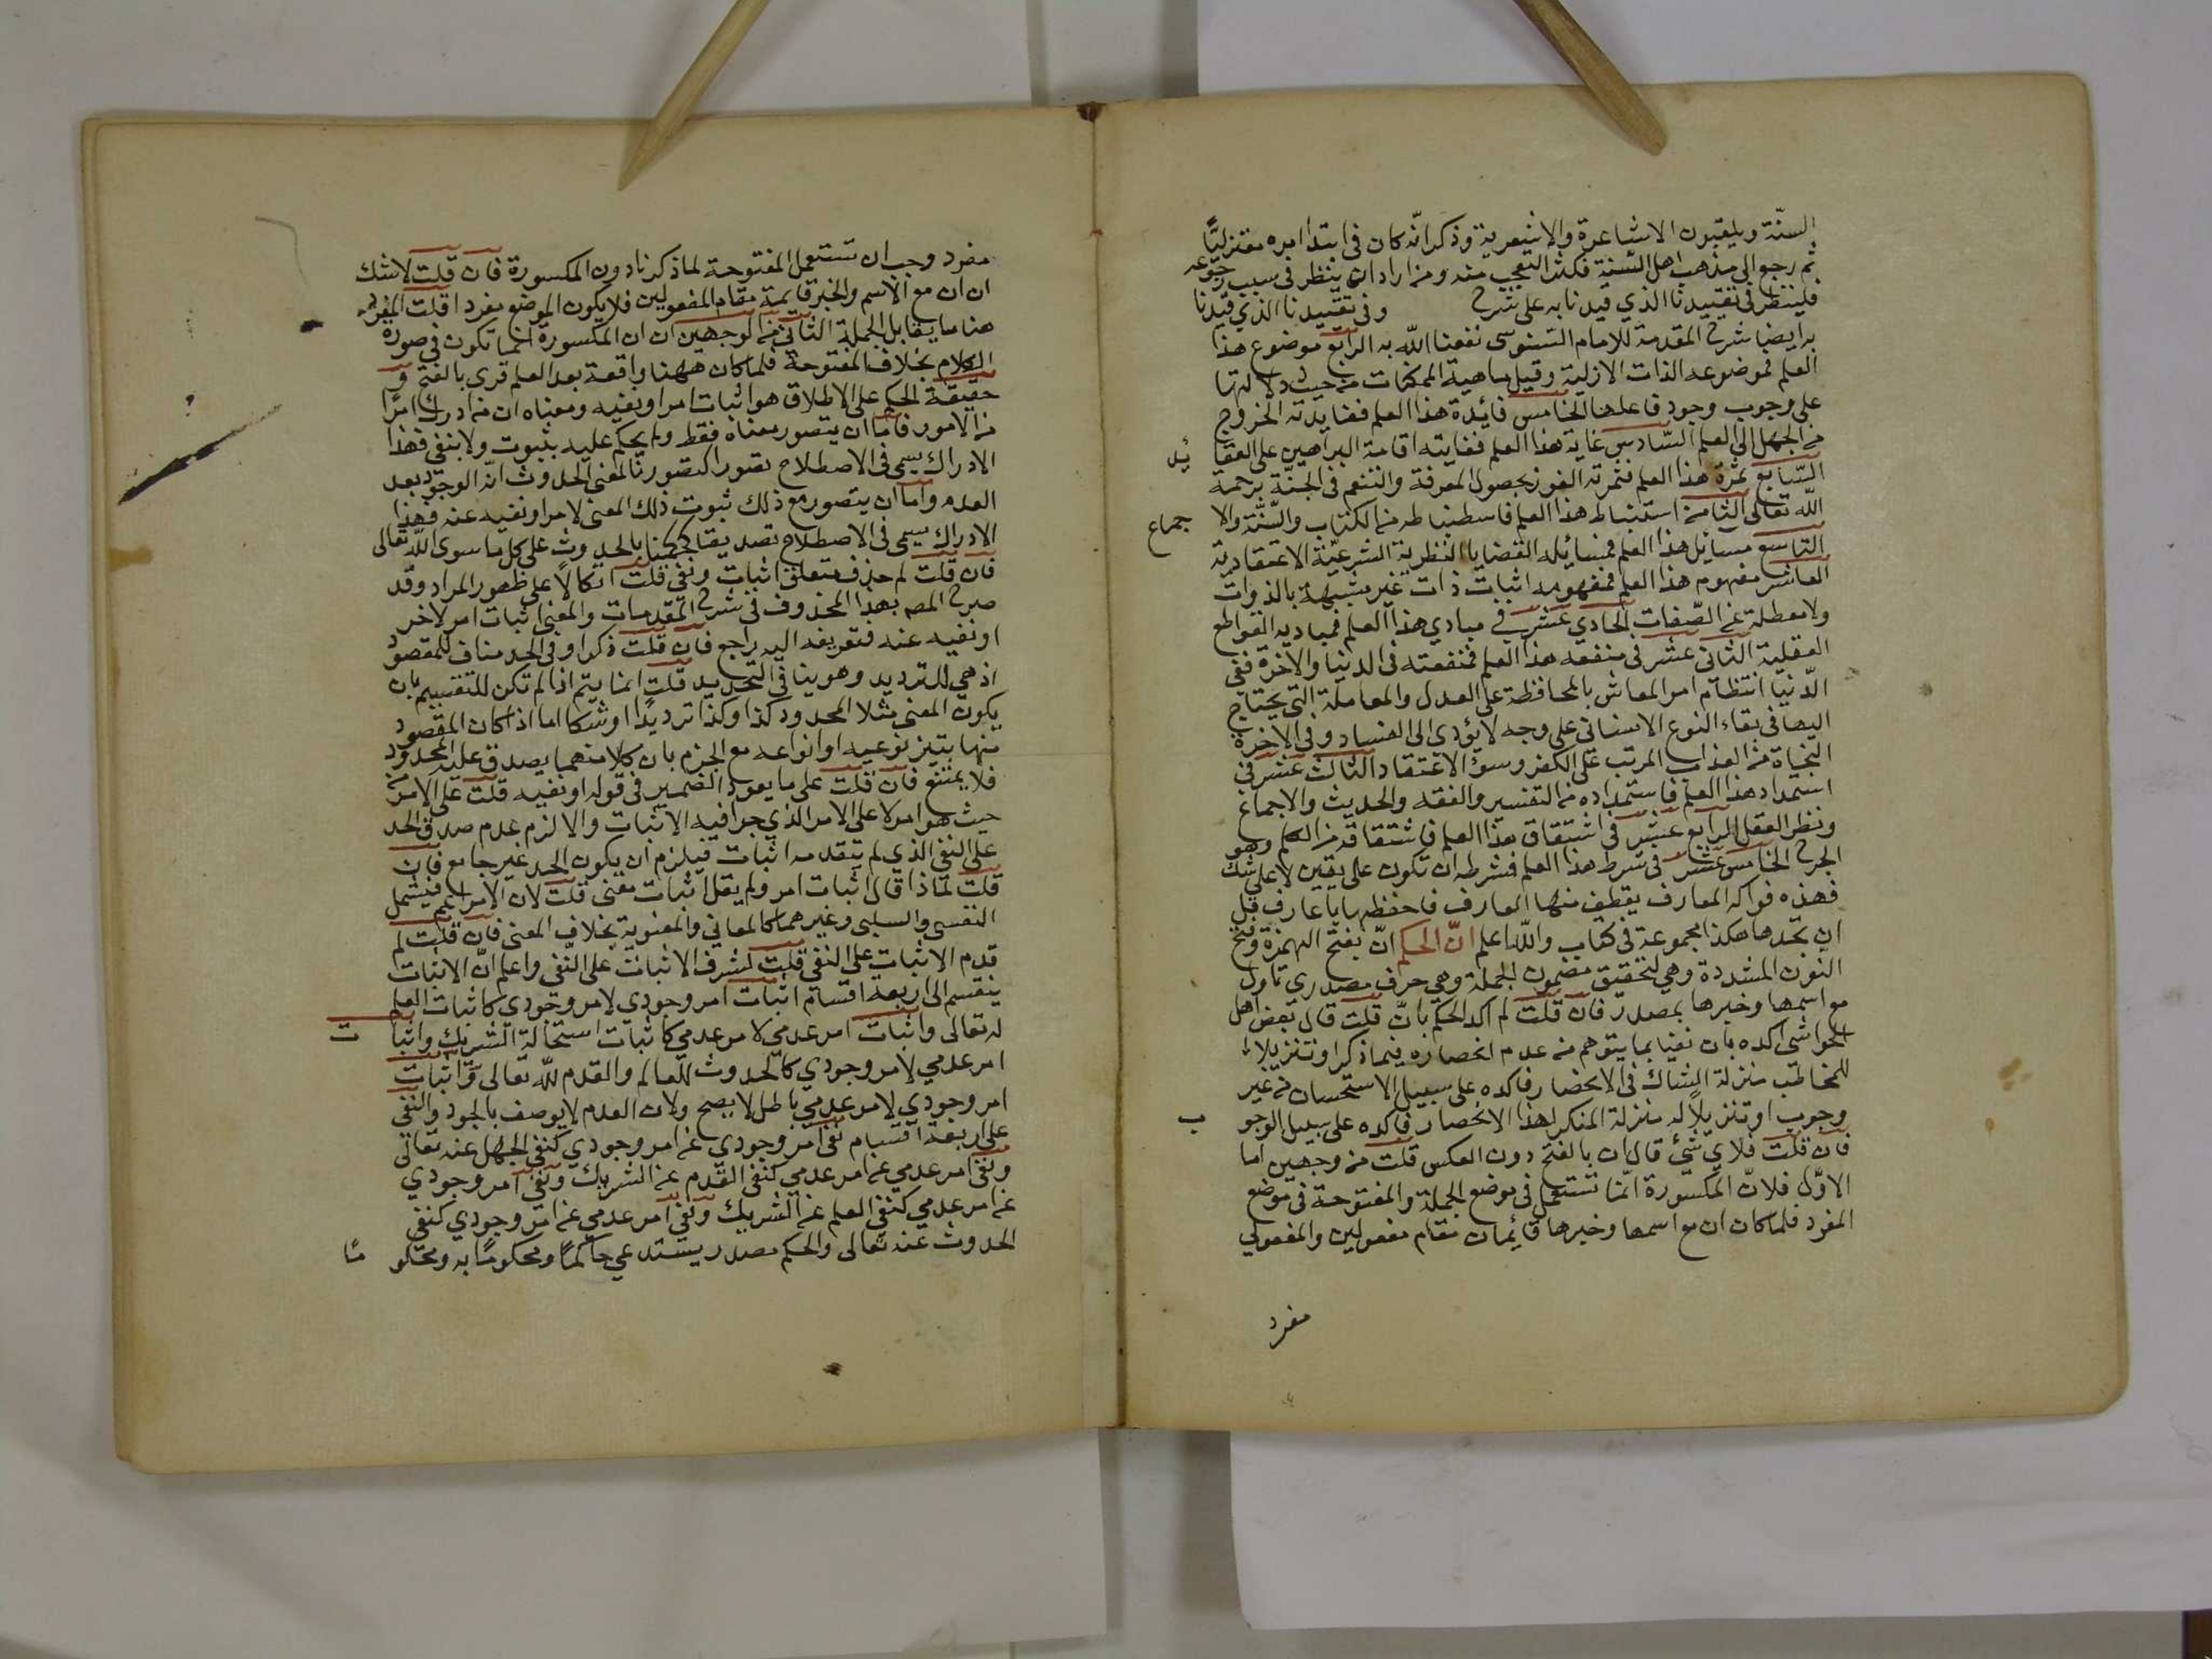 السنّة ويلقبون الاشاعرة والاشعرية وذكر انّه كان في ابتدا امره معتزليًّا
ثم رجع الى مذهب اهل السنة فكثر التعجب منه ومن اراد ان ينظر في سبب رجوعه
فلينظر في تقييدنا الذي قيدنا به على شرح وفي تقييدنا الذي قيدنا
به ايضا شرح المقدمة للامام السنوسى نفعنا الله به الرابع موضوع هذا
العلم فموضوعه الذات الازلية وقيل ماهية الممكنات من حيث دلالتها
على وجوب وجود فاعلها الخامس فائدة هذا العلم ففايدته الخروج
من الجهل الى العلم السّادس غاية هذا العلم فغايته اقامة البراهين على العقائد
السّابع ثمرة هذا العلم فثمرته الفوز بحصول المعرفة والتنعم في الجنّة برحمة
الله تعالى الثامن استنباط هذا العلم فاستنباطه من الكتاب والسّنّة والاجماع
التاسع مسائل هذا العلم فمسائله القضايا النظرية الشرعيّة الاعتقادية
العاشر مفهوم هذا العلم فمفهومه اثبات ذات غير مشبهة بالذوات
ولا معطلة عن الصّفات الحادي عشر في مبادي هذا العلم فمباديه القواطع
العقلية الثاني عشر في منفعة هذا العلم فمنفعته في الدنيا والاخرة ففي
الدّنيا انتظام امر المعاش بالمحافظة على العدل والمعاملة التي يحتاج
اليها في بقاء النوع الانساني على وجه لا يؤدي الى الفساد وفي الاخرة
النجاة من العذاب المرتب على الكفر وسوء الاعتقاد الثالث عشر في
استمداد هذا العلم فاستمداده من التفسير والفقه والحديث والاجماع
ونظر العقل الرابع عشر في اشتقاق هذا العلم فاشتقاقه من الكلم وهو
الجرح الخامس عشر في شرط هذا العلم فشرطه ان تكون على يقين لا على شك
فهذه فواكه المعارف يقطف منها العوارف فاحفظها يا عارف قبل
ان تجدها هكذا مجموعة في كتاب والله اعلم انّ الحكم انّ بفتح الهمزة وفتح
النون المشددة وهي لتحقيق مضمون الجملة وهي حرف مصدري تاول
مع اسمها وخبرها بمصدر فان قلت لم اكد الحكم بانّ قلت قال بعض اهل
الحواشى اكده بان نفيا بما يتوهم من عدم انحصاره فيما ذكر او تنزيلا
للمخاطب منزلة الشاك في الانحصار فاكده على سبيل الاستحسان من غير
وجوب او تنزيلاً له منزلة المنكر لهذا الانحصار فاكده على سبيل الوجوب
فان قلت فلاي شئ قال ان بالفتح دون العكس قلت من وجهين اما
الاوّل فلانّ المكسورة انّما تستعمل في موضع الجملة والمفتوحة في موضع
المفرد فلما كان ان مع اسمها وخبرها قايمان مقام مفعولين والمفعولي
مفرد
مفرد وجب ان تستعمل المفتوحة لما ذكرنا دون المكسورة فان قلت لا شك
ان ان مع الاسم والخبر قايمة مقام المفعولين فلا يكون الموضع مفردا قلت المفرد
هنا ما يقابل الجملة الثاني من الوجهين ان ان المكسورة انما تكون في صورة
الكلام بخلاف المفتوحة فلما كان ههنا واقعة بعد العلم قرى بالفتح
حقيقة الحكم على الاطلاق هو اثبات امر او نفيه ومعناه ان من ادرك امرًا
من الامور فاما ان يتصور معناه فقط ولم يحكم عليه بثبوت ولا بنفي فهذا
الادراك يسمى في الاصطلاح تصورا كتصورنا لمعنى الحدوث انّه الوجود بعد
العدم واما ان يتصور مع ذلك ثبوت ذلك المعنى لامر او نفيه عنه فهذا
الادراك يسمى في الاصطلاح تصديقا كحكمنا بالحدوث على كل ما سوى الله تعالى
فان قلت لم حذف متعلق اثبات ونفي قلت اتكالاً على ظهور المراد وقد
صرح المص بهذا المحذوف في شرح المقدمات والمعنى اثبات امر لاخر
او نفيه عنه فتعريفه اليه راجع فان قلت ذكر او في الحد مناف للمقصود
اذ هي للترديد وهو ينافي التحديد قلت انما يتم اذا لم تكن للتقسيم بان
يكون المعنى مثلا المحدود كذا وكذا ترديدًا او شكا اما اذا كان المقصود
منها تبيين نوعيه او انواعه مع الجزم بان كلا منهما يصدق عليه المحدود
فلا يمتنع فان قلت على ما يعود الضمير في قوله او نفيه قلت على الامر من
حيث هو امر لا على الامر الذي جرا فيه الاثبات والا لزم عدم صدق الحد
على النفي الذي لم يتقدمه اثبات فيلزم ان يكون الحد غير جامع فان
قلت لماذا قال اثبات امر ولم يقل اثبات معنى قلت لان الامر اعم فيشمل
النفسى والسلبى وغيرهما كالمعاني والمعنوية بخلاف المعنى فان قلت لم
قدم الاثبات على النفي قلت لشرف الاثبات على النّفي واعلم انّ الاثبات
ينقسم الى اربعة اقسام اثبات امر وجودي لامر وجودي كاثبات العلم
له تعالى واثبات امر عدمي لامر عدمي كاثبات استحالة الشريك واثبات
امر عدمي لامر وجودي كالحدوث للعالم والقدم لله تعالى واثبات
امر وجودي لامر عدمي باطل لا يصح ولان العدم لا يوصف بالجود والنفي
على اربعة اقسام نفى امر وجودي عن امر وجودي كنفي الجهل عنه تعالى
ونفى امر عدمي عن امر عدمي كنفي القدم عن الشريك ونفي امر وجودي
عن امر عدمي كنفي العلم عن الشريك ونفي امر عدمي عن امر وجودي كنفي
الحدوث عنه تعالى والحكم مصدر يستدعي حاكمًا ومحكومًا به ومحكومًا